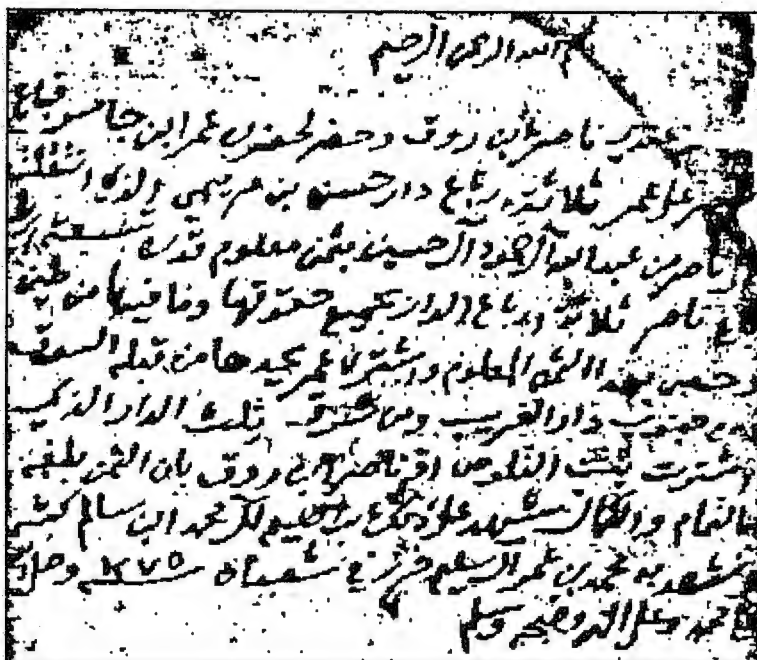 بسم الله الرحمن الرحيم
ناصر ابن روق وحضر لحضوره عمر ابن جاسر فباع
ناصر على عمر ثلاثة ارباع دار حسين بن الذي
ناصر من عبدالله آل حمود آل حسين بثمن معلوم قدره
باع ناصر ثلاثة ارباع الدار بجميع حقوقها وما فيها من طين
وخص بهذا الثمن المعلوم واشترى عمر يحدها من قبله السوق
ومن جنوب دار الغريب ومن شرق ثلث الدار الذي
اشترت بنت اقر ناصر ابن روق بان الثمن بلغه
بالتمام والكمال شهد على ذلك محمد ابن سالم
وشهد به محمد بن عمر السليم في شعبان ١٢٧٥ وصلى
محمد وعلى اله وصحبه وسلم